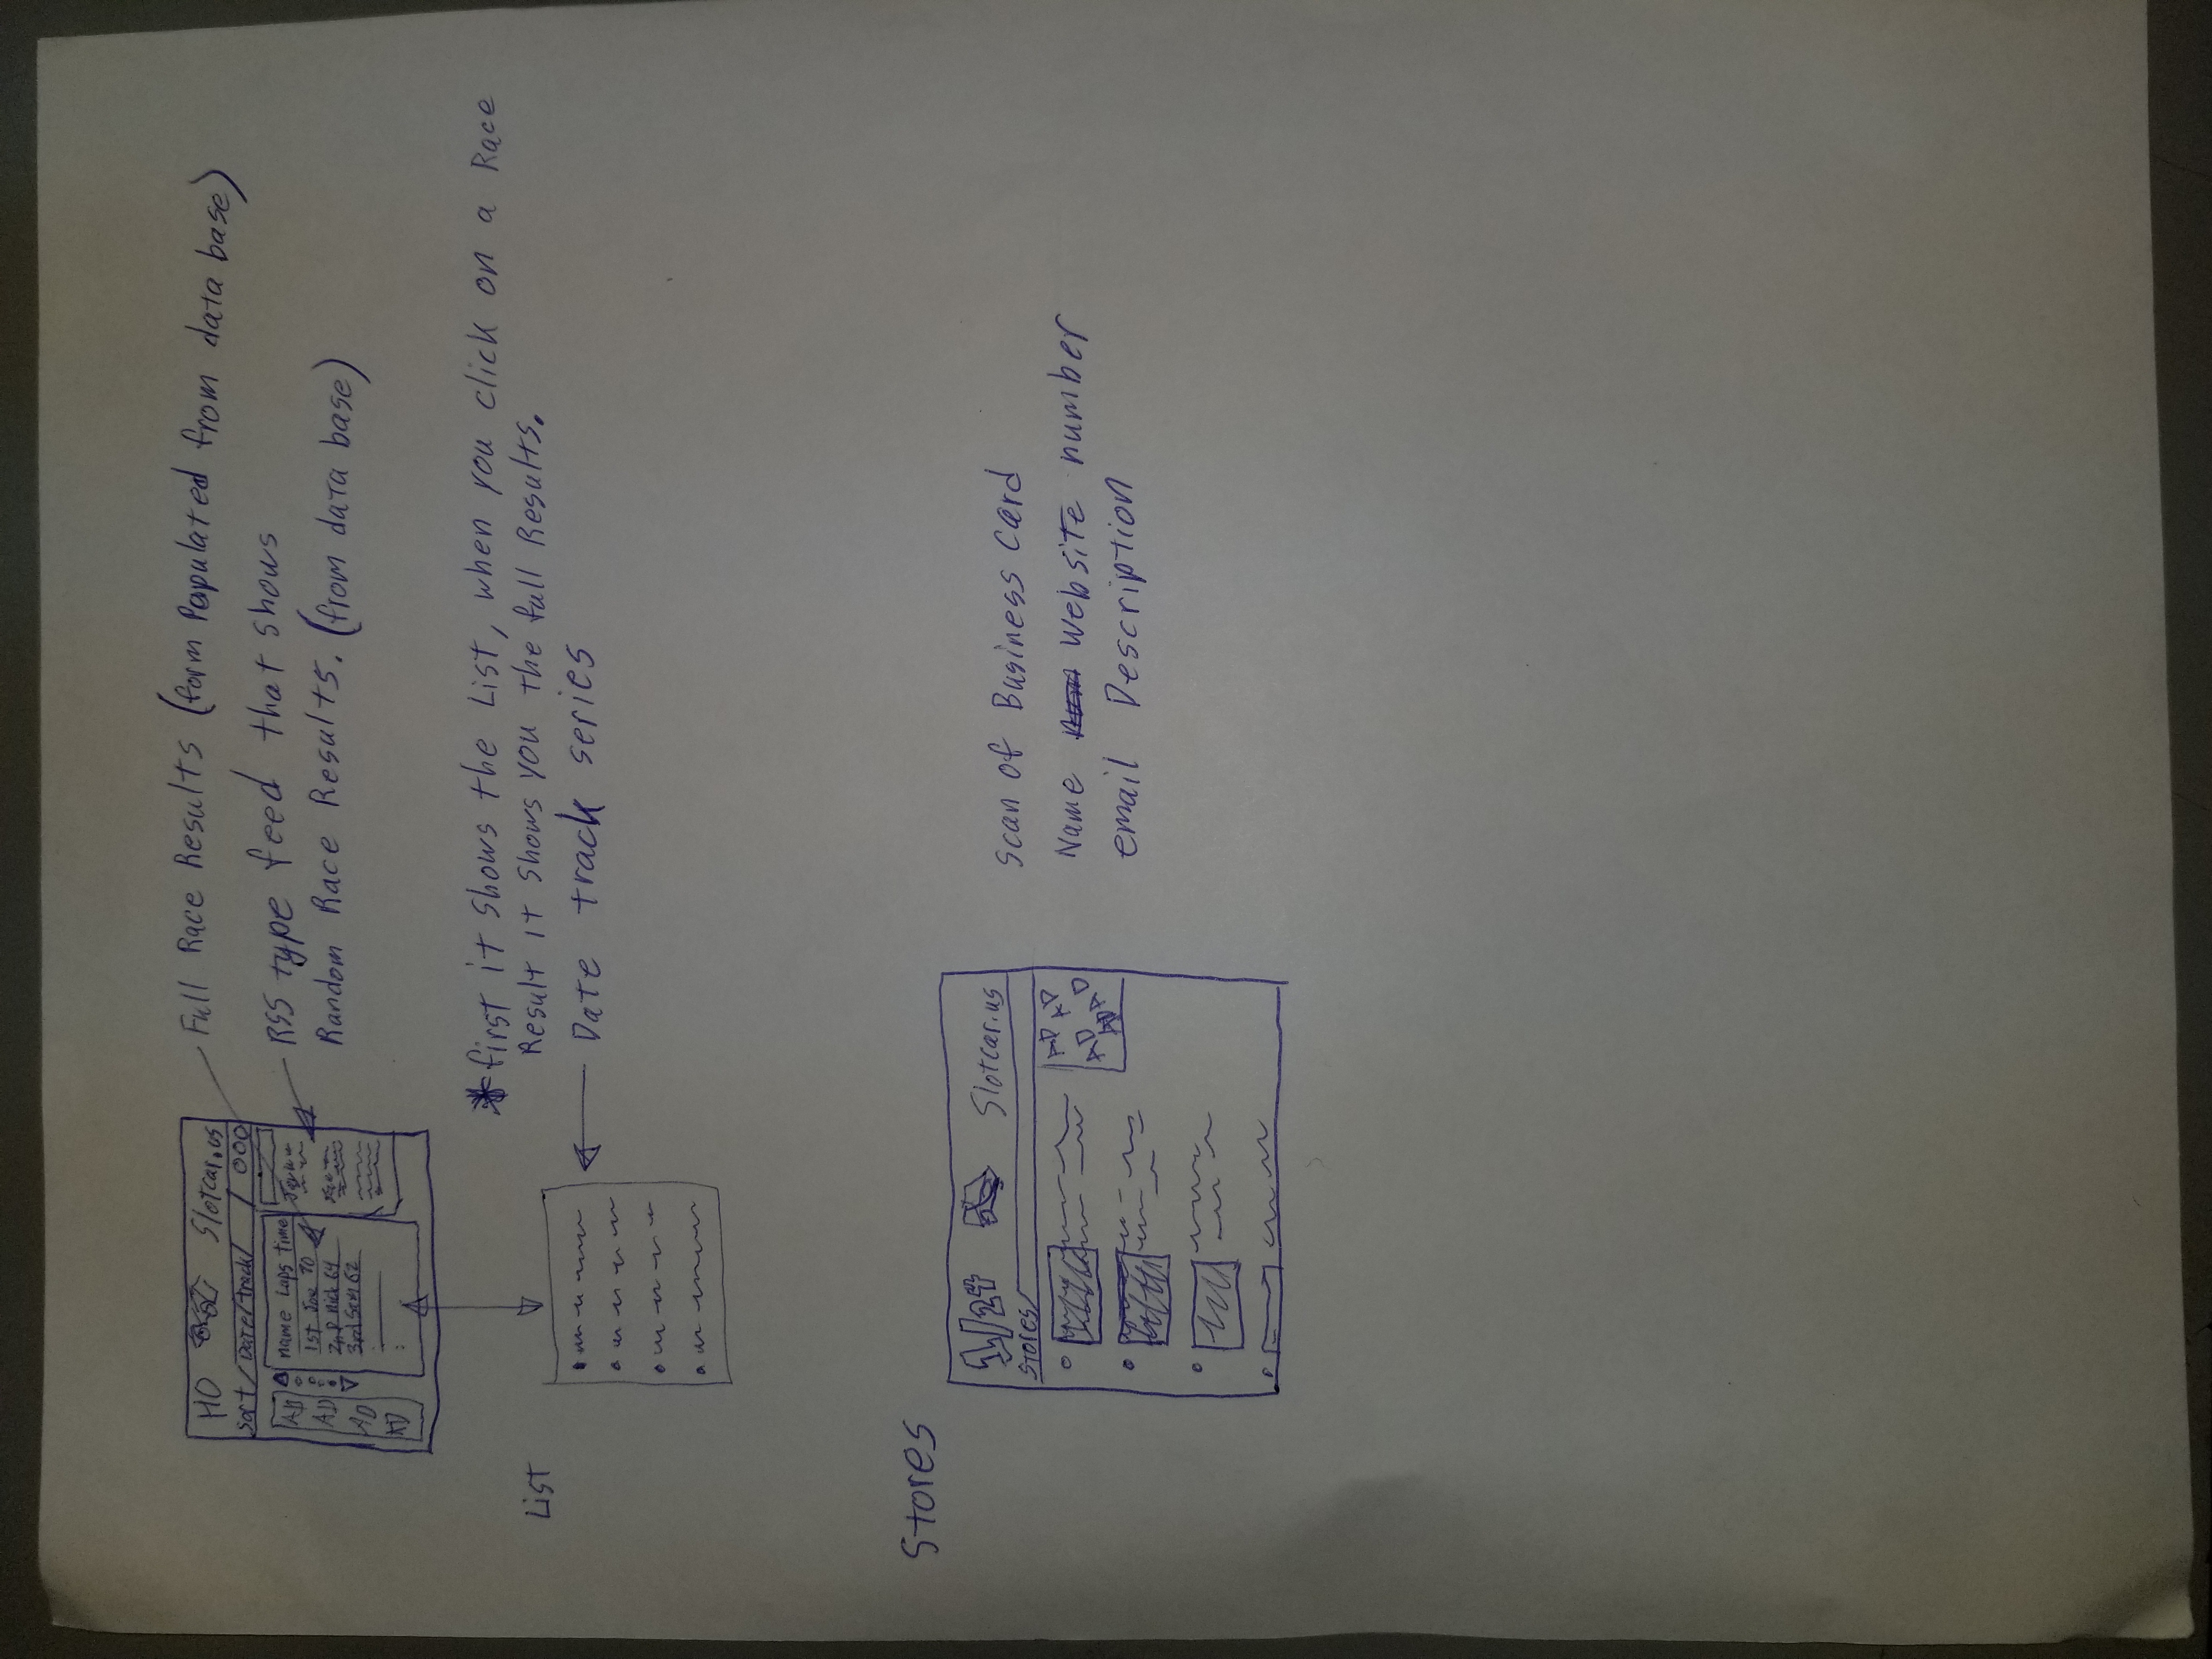 HO Slotcar.us
Sort/Date/track/ / OOO
AD
AD
AD
AD
name Laps time
1st Joe 70
2nd Nick 64
3rd Sam 62
Full Race Results (form Populated from data base)
RSS type feed that shows
Random Race Results. (from data base)
* first it shows the List, when you click on a Race
Result it shows you the full Results.
List
Date track series
Stores
1/24 Slotcar.us
Stores/
AD AD
AD AD
AD
Scan of Business Card
Name Website number
email Description